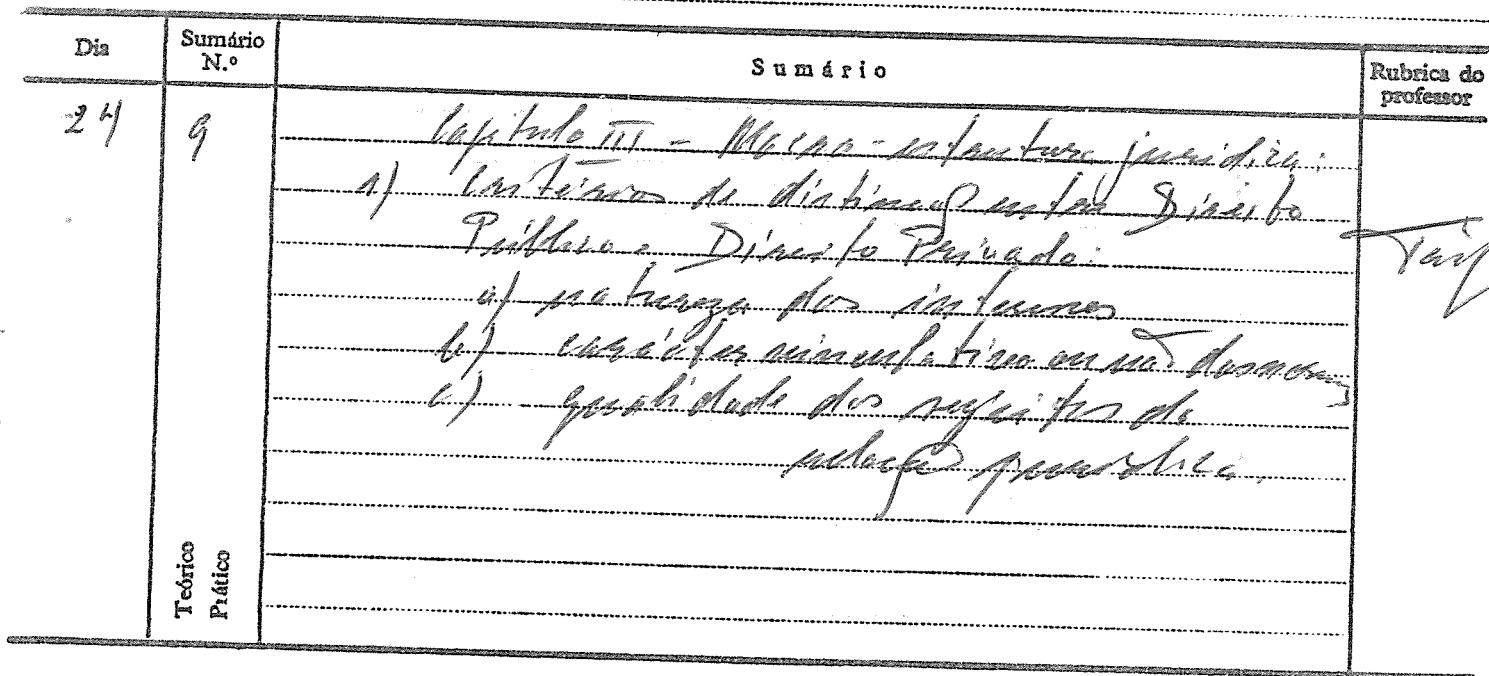 Dia
Sumário N.º
Sumário
Rubrica do professor
24
9
Capítulo III - Macro-estrutura jurídica:
1) Critérios de distinção entre Direito
Público e Direito Privado:
a) natureza dos interesses
b) carácter vinculativo ou não das normas
c) qualidade dos sujeitos da
relação jurídica.
Teórico
Prático